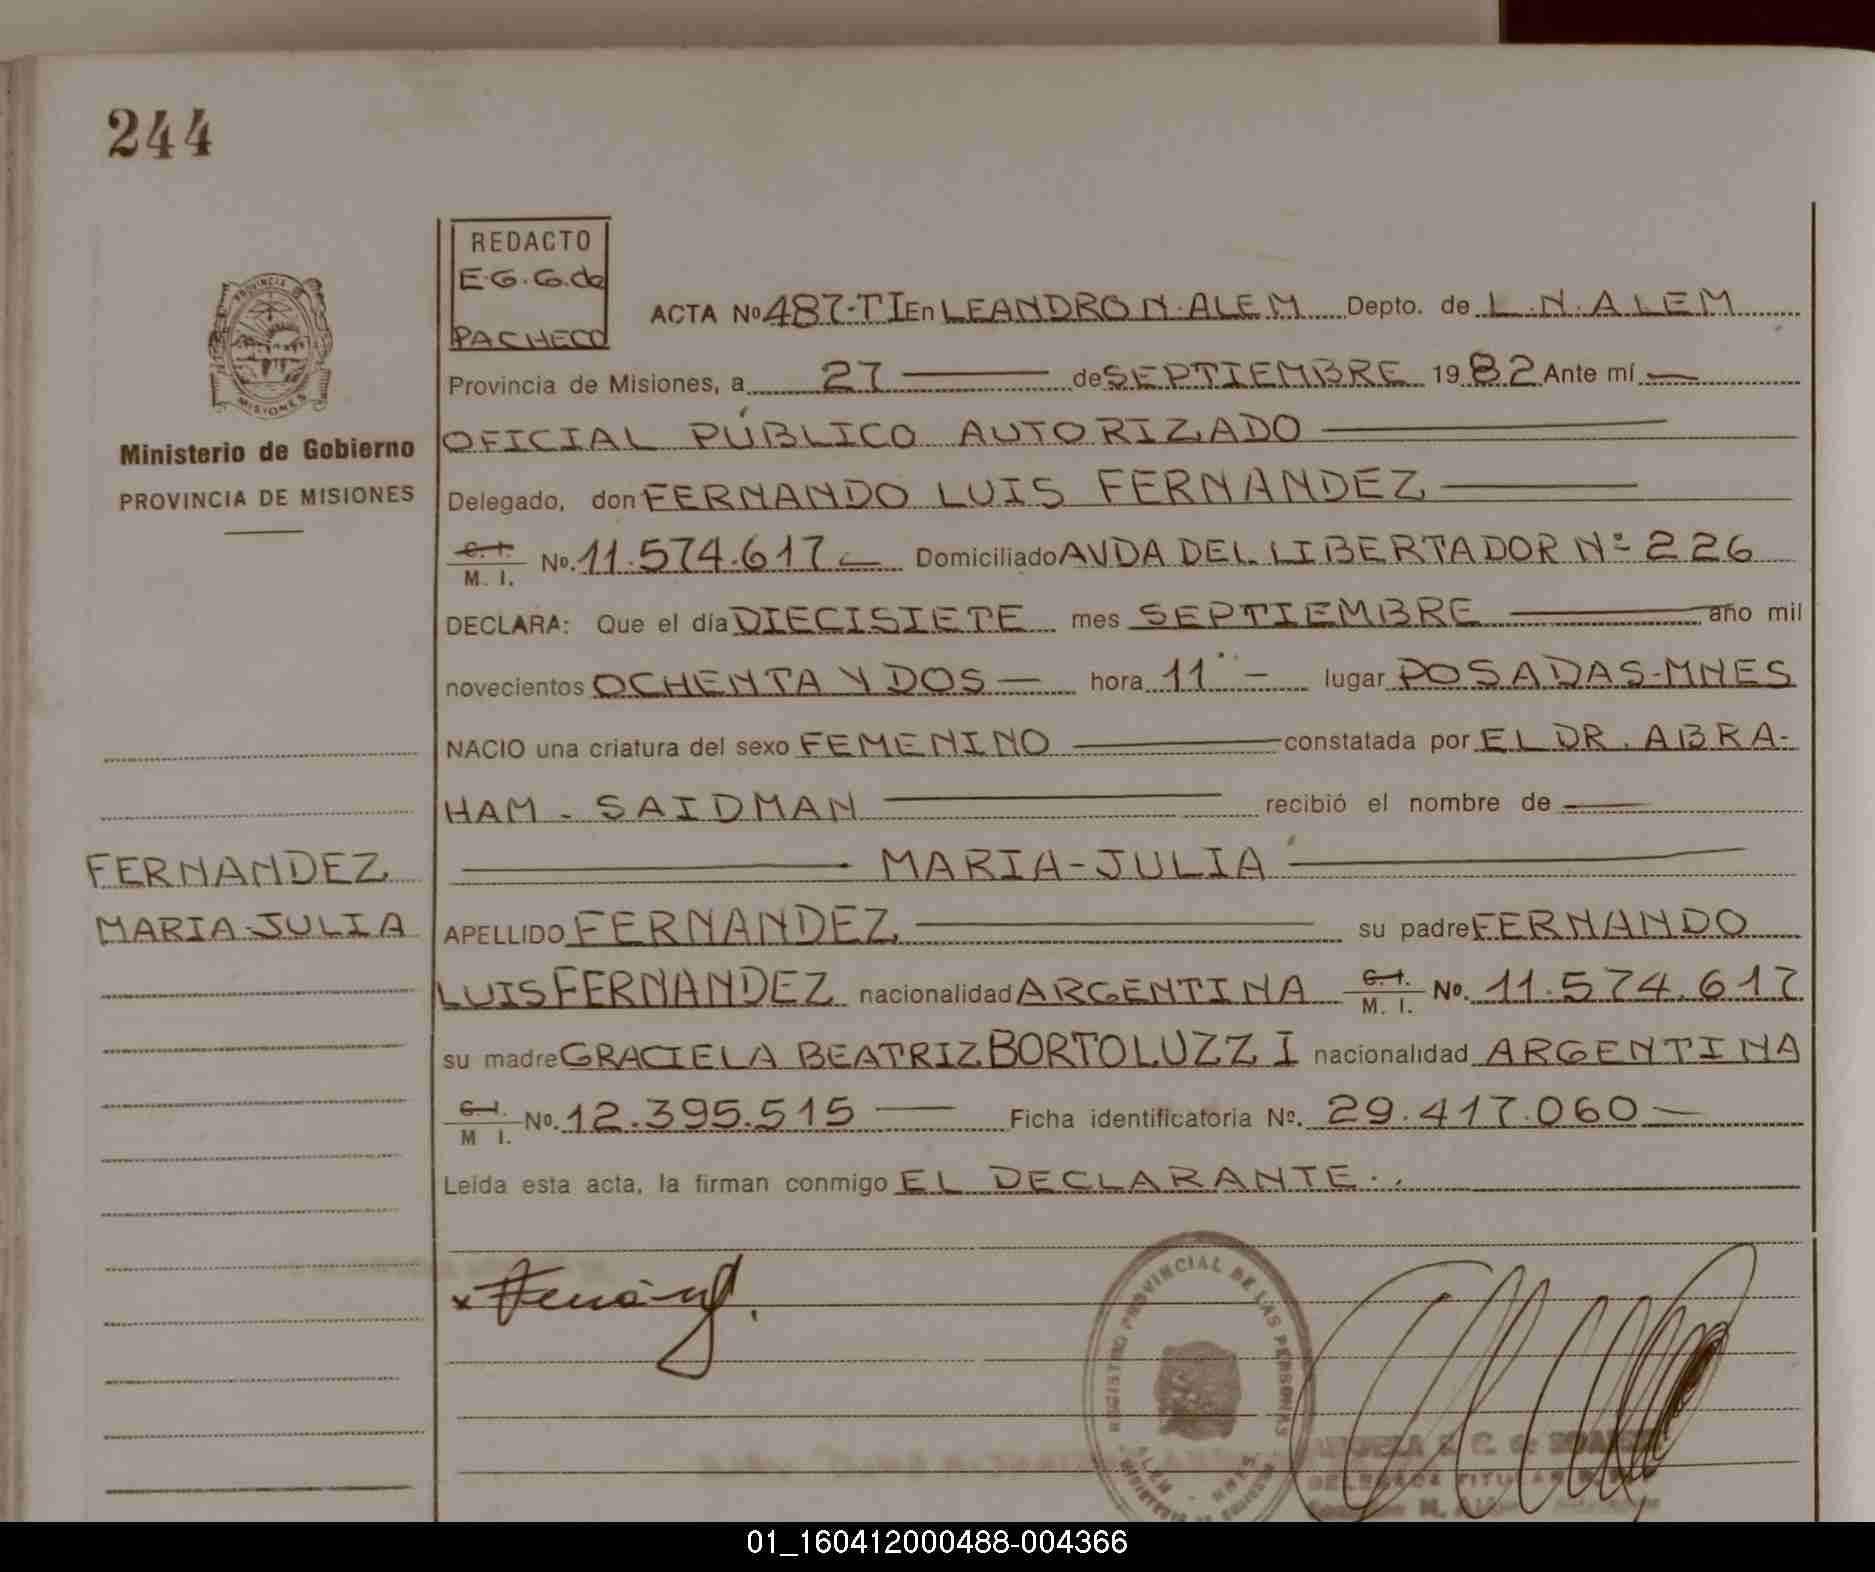 244
REDACTO
E.G.G.de
PACHECO
ACTA Nº 487-TI En LEANDRO N. ALEM Depto. de L.N.ALEM
Provincia de Misiones, a 27 de SEPTIEMBRE 1982 Ante mí
OFICIAL PÚBLICO AUTORIZADO
Delegado, don FERNANDO LUIS FERNANDEZ
C. I.
M. I. Nº. 11.574.617 Domiciliado AVDA DEL LIBERTADOR Nº 226
DECLARA: Que el día DIECISIETE mes SEPTIEMBRE año mil
novecientos OCHENTA Y DOS hora 11 lugar POSADAS-MNES
NACIO una criatura del sexo FEMENINO constatada por EL DR. ABRA-
HAM - SAIDMAN recibió el nombre de
MARIA-JULIA
APELLIDO FERNANDEZ su padre FERNANDO
LUIS FERNANDEZ nacionalidad ARGENTINA C. I. M. I. Nº. 11.574.617
su madre GRACIELA BEATRIZ BORTOLUZZI nacionalidad ARGENTINA
C. I. M I. Nº. 12.395.515 Ficha identificatoria Nº. 29.417.060
Leída esta acta, la firman conmigo EL DECLARANTE.
PROVINCIA
MISIONES
Ministerio de Gobierno
PROVINCIA DE MISIONES
FERNANDEZ
MARIA JULIA
REGISTRO PROVINCIAL DE LAS PERSONAS
ALEM - MNES
01_160412000488-004366